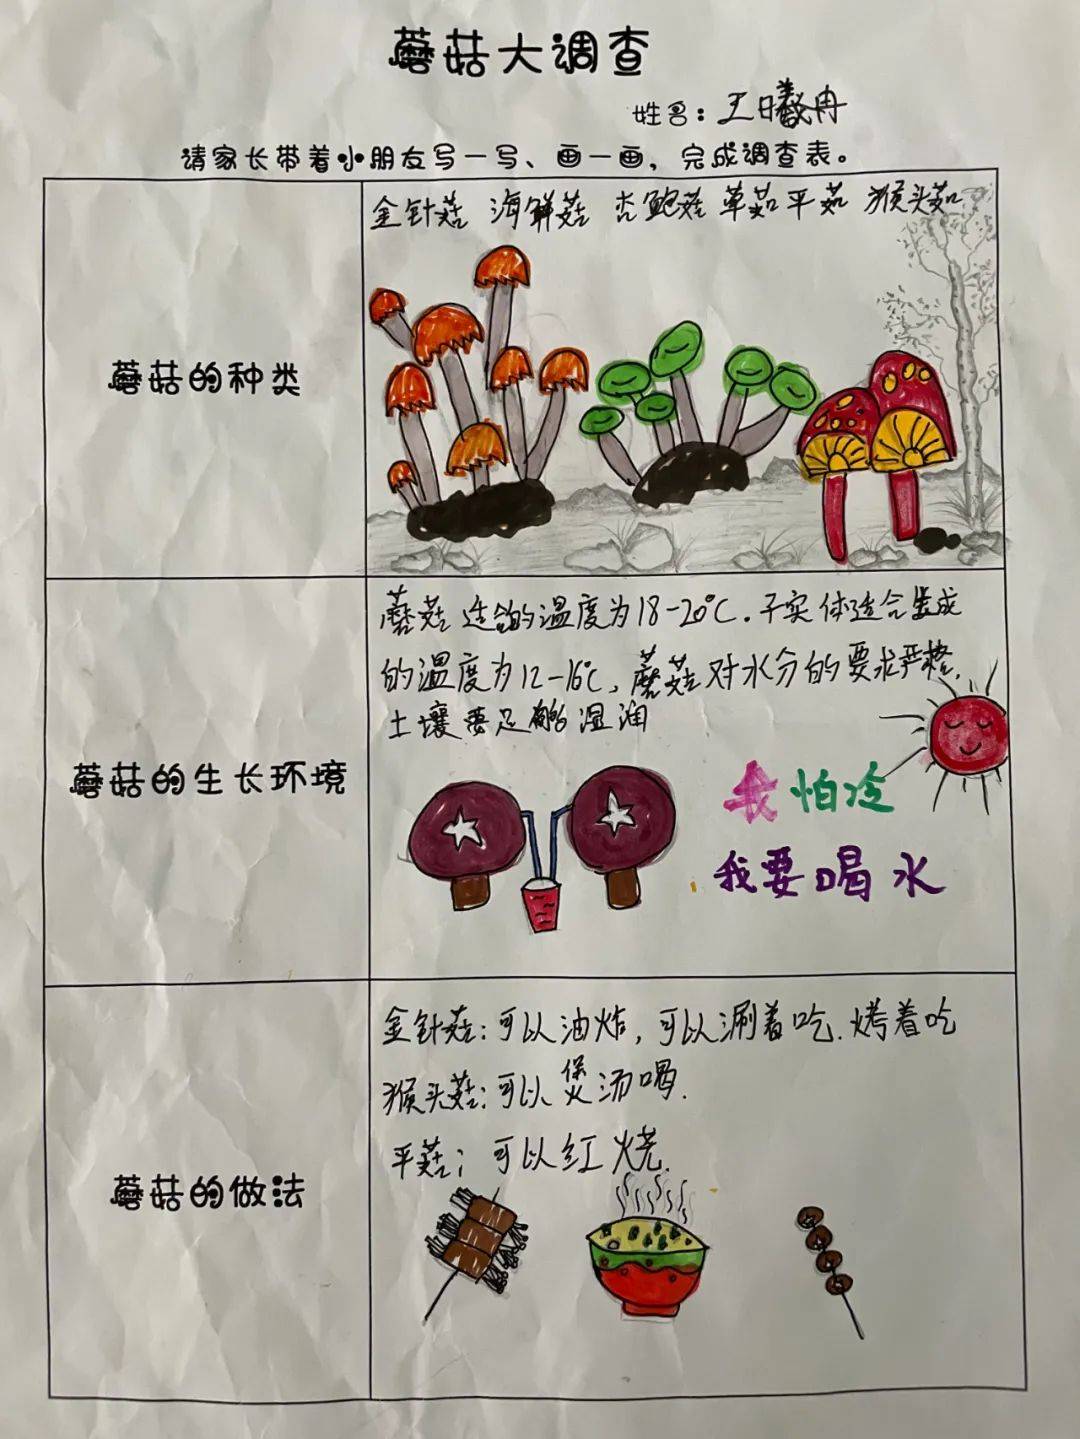 蘑菇大调查
姓名：王曦冉
请家长带着小朋友写一写、画一画，完成调查表。
金针菇 海鲜菇 杏鲍菇 草菇 平菇 猴头菇
蘑菇的种类
蘑菇适合的温度为18-20℃.子实体适合生成
的温度为12-16℃,蘑菇对水分的要求严格,
土壤要足够湿润
蘑菇的生长环境
我怕冷
我要喝水
金针菇:可以油炸,可以涮着吃.烤着吃
猴头菇:可以煲汤喝.
平菇;可以红烧.
蘑菇的做法